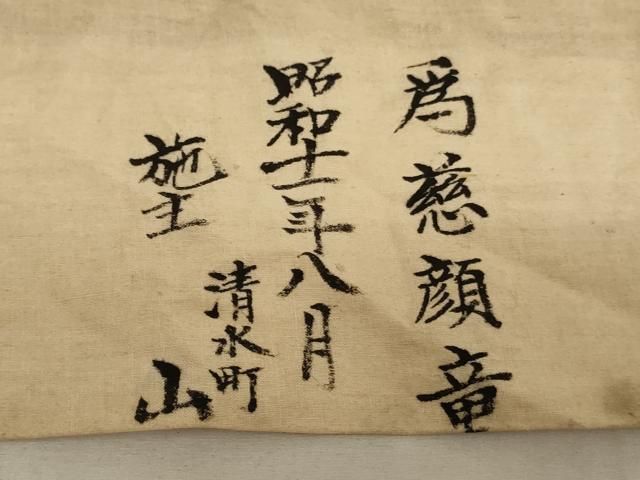 為慈顔
昭和十一年八月
清水町
施主 山